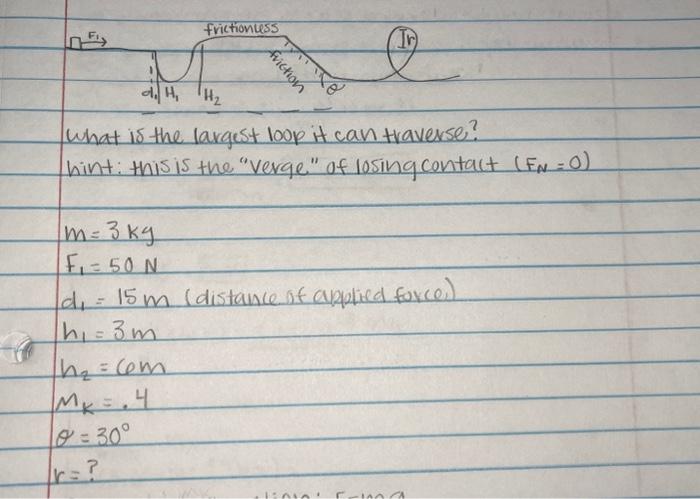 frictionless
F₁
Ir
friction
θ
d₁ H₁
H₂
What is the largest loop it can traverse?
hint: this is the "verge" of losing contact (FN = 0)
m = 3 kg
F₁ = 50 N
d₁ = 15 m (distance of applied force)
h₁ = 3 m
h₂ = 6m
Mk = .4
θ = 30°
r = ?